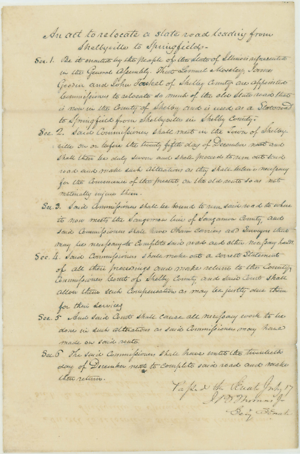 An act to relocate a state road leading from
Shelbyville to Springfield.
Sec 1. Be it enacted by the People of the State of Illinois represented
in the General Assembly That Samuel Moseley James
and John of Shelby County are appointed
Commissioners to relocate so much of the also State road that
is now in the County of Shelby and is used as a
to Springfield from Shelbyville in Shelby County.
Sec 2. Said Commissioners shall meet in the Town of Shelby-
ville on or before the twenty fifth day of December next and
shall then be duly sworn and shall proceed to view out said
road and make such alterations as they shall deem necessary
for the Convenience of the present on the old route so as not
materially injure them
Sec 3. Said Commissioners shall be bound to run said road to where
to now meets the Sangamon line of Sangamon County and
said Commissioners shall have Chain carriers and Surveyor that
may be necessary to complete said road and other necessary hands
Sec 4. Said Commissioners shall make out a correct Statement
of all their proceedings and make return to the County
Commissioners Court of Shelby County and said Court shall
allow them such Compensation as may be justly due them
for their Services
Sec 5 And said Court shall cause all necessary work to be
done in such alterations as said Commissioners may have
made on said route
Sec 6 The said Commissioners shall have until the twentieth
day of December next to complete said road and make
their return.
Passed the Senate July 17